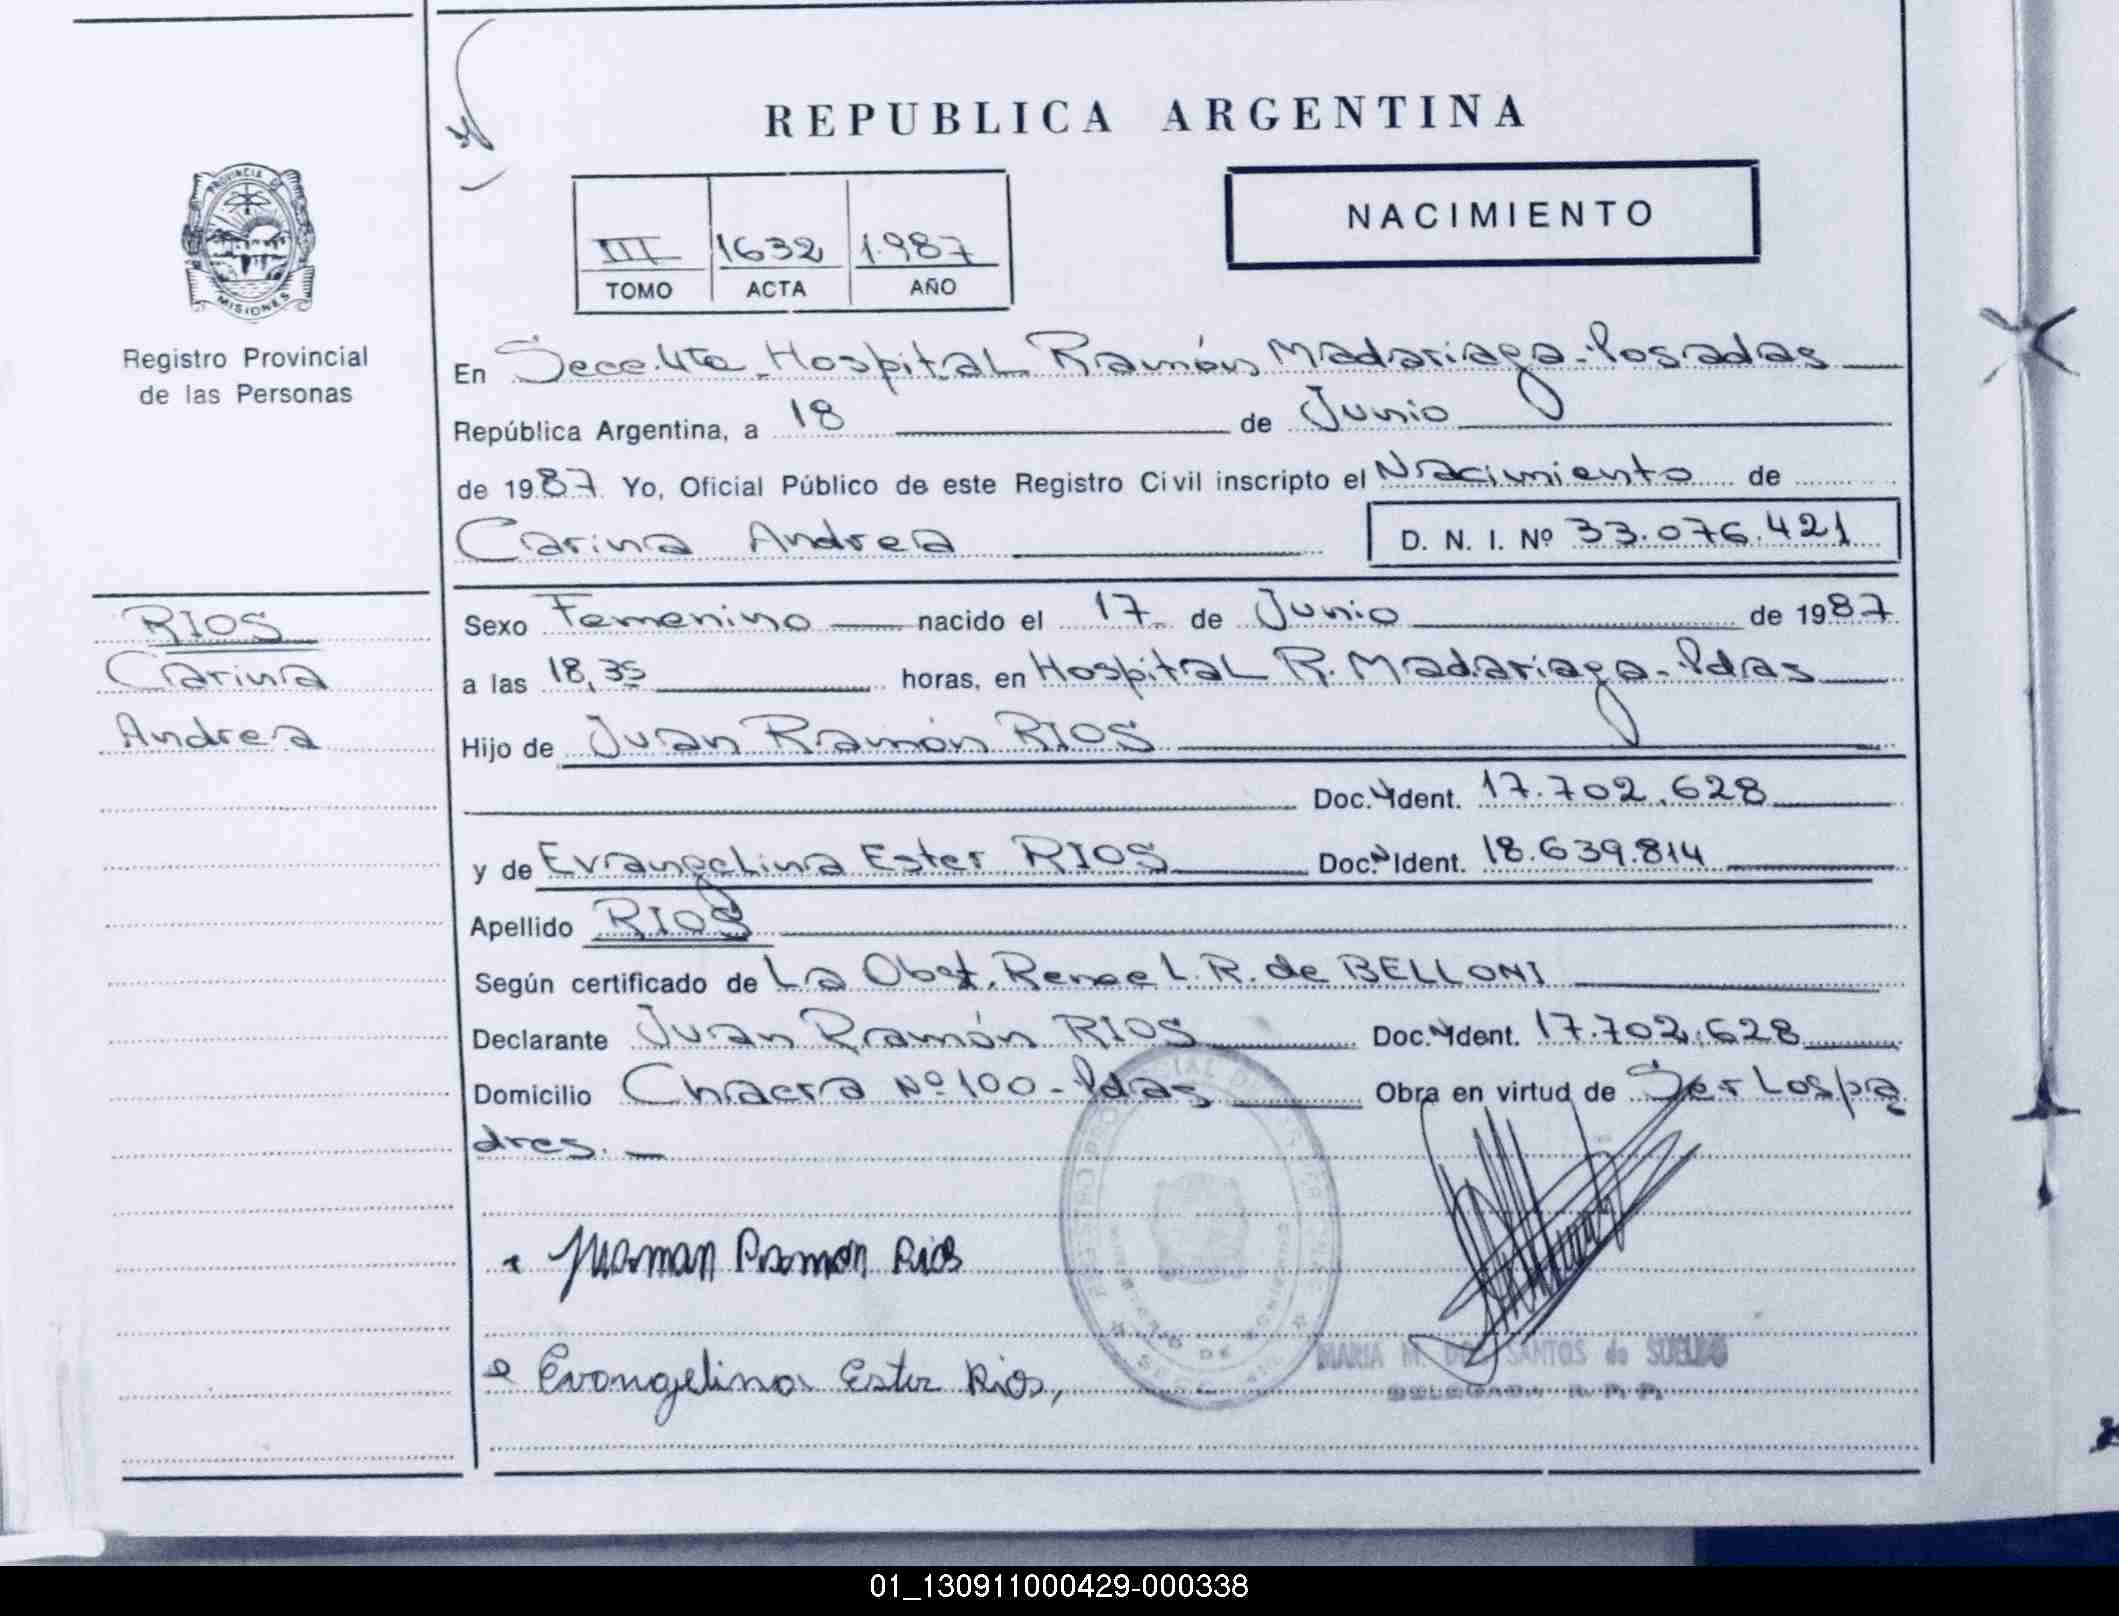 REPUBLICA ARGENTINA
NACIMIENTO
III 1632 1.987
TOMO ACTA AÑO
PROVINCIA DE
MISIONES
Registro Provincial
de las Personas
En Secc. 4ta. Hospital Ramón Madariaga - Posadas
República Argentina, a 18 de Junio
de 1987. Yo, Oficial Público de este Registro Civil inscripto el Nacimiento de
Carina Andrea D. N. I. Nº 33.076.421
RIOS
Carina
Andrea
Sexo Femenino nacido el 17 de Junio de 1987
a las 18,35 horas, en Hospital R. Madariaga - Pdas
Hijo de Juan Ramón RIOS
Doc. Ident. 17.702.628
y de Evangelina Ester RIOS Doc. Ident. 18.639.814
Apellido RIOS
Según certificado de La Obst. Renee L. R. de BELLONI
Declarante Juan Ramón RIOS Doc. Ident. 17.702.628
Domicilio Chacra Nº 100 - Pdas Obra en virtud de Ser Los pa
dres.
Ramon Rios
Evangelina Ester Rios,
MARIA M. DOS SANTOS de SUELDO
DELEGADA R. P. P.
01_130911000429-000338